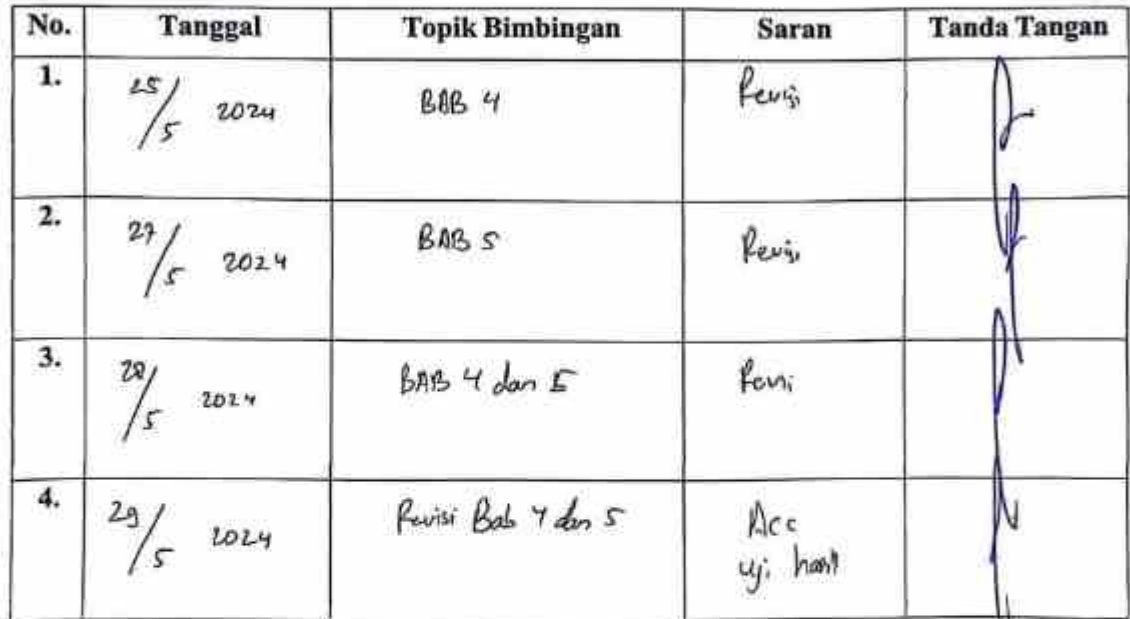 No. Tanggal Topik Bimbingan Saran Tanda Tangan
1. 25/5 2024 BAB 4 Revisi
2. 27/5 2024 BAB 5 Revisi
3. 28/5 2024 BAB 4 dan 5 Revisi
4. 29/5 2024 Revisi Bab 4 dan 5 Acc
uji hasil